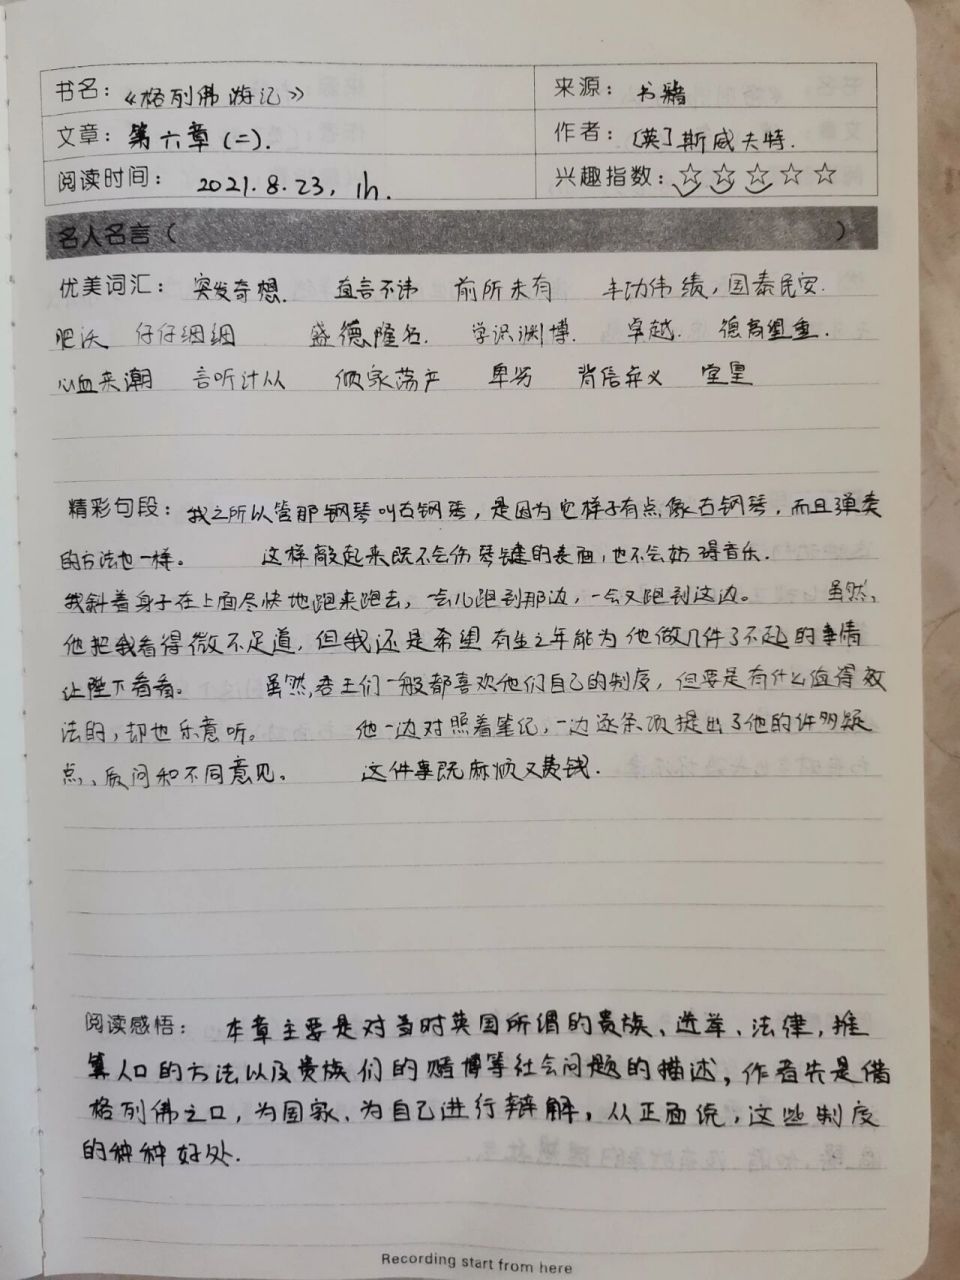 书名：《格列佛游记》 来源：书籍
文章：第六章(二). 作者：[英]斯威夫特.
阅读时间：2021.8.23, 1h. 兴趣指数：☆☆☆☆☆
名人名言（ ）
优美词汇：突发奇想. 直言不讳 前所未有 丰功伟绩，国泰民安.
肥沃 仔仔细细 盛德隆名. 学识渊博. 卓越. 德高望重.
心血来潮 言听计从 倾家荡产 卑劣 背信弃义 堂皇
精彩句段：我之所以管那钢琴叫古钢琴，是因为它样子有点像古钢琴，而且弹奏
的方法也一样。 这样敲起来既不会伤琴键的表面，也不会妨碍音乐.
我斜着身子在上面尽快地跑来跑去，一会儿跑到那边，一会又跑到这边。 虽然，
他把我看得微不足道，但我还是希望有生之年能为他做几件了不起的事情
让陛下看看。 虽然，君王们一般都喜欢他们自己的制度，但要是有什么值得效
法的，却也乐意听。 他一边对照着笔记，一边逐条项提出了他的许多疑
点、质问和不同意见。 这件事既麻烦又费钱.
阅读感悟：本章主要是对当时英国所谓的贵族、选举、法律，推
算人口的方法以及贵族们的赌博等社会问题的描述，作者先是借
格列佛之口，为国家、为自己进行辩解，从正面说，这些制度
的种种好处.
Recording start from here